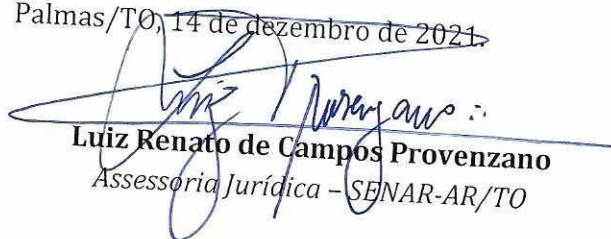 Palmas/TO, 14 de dezembro de 2021.
Luiz Provenzano
Luiz Renato de Campos Provenzano
Assessoria Jurídica – SENAR-AR/TO